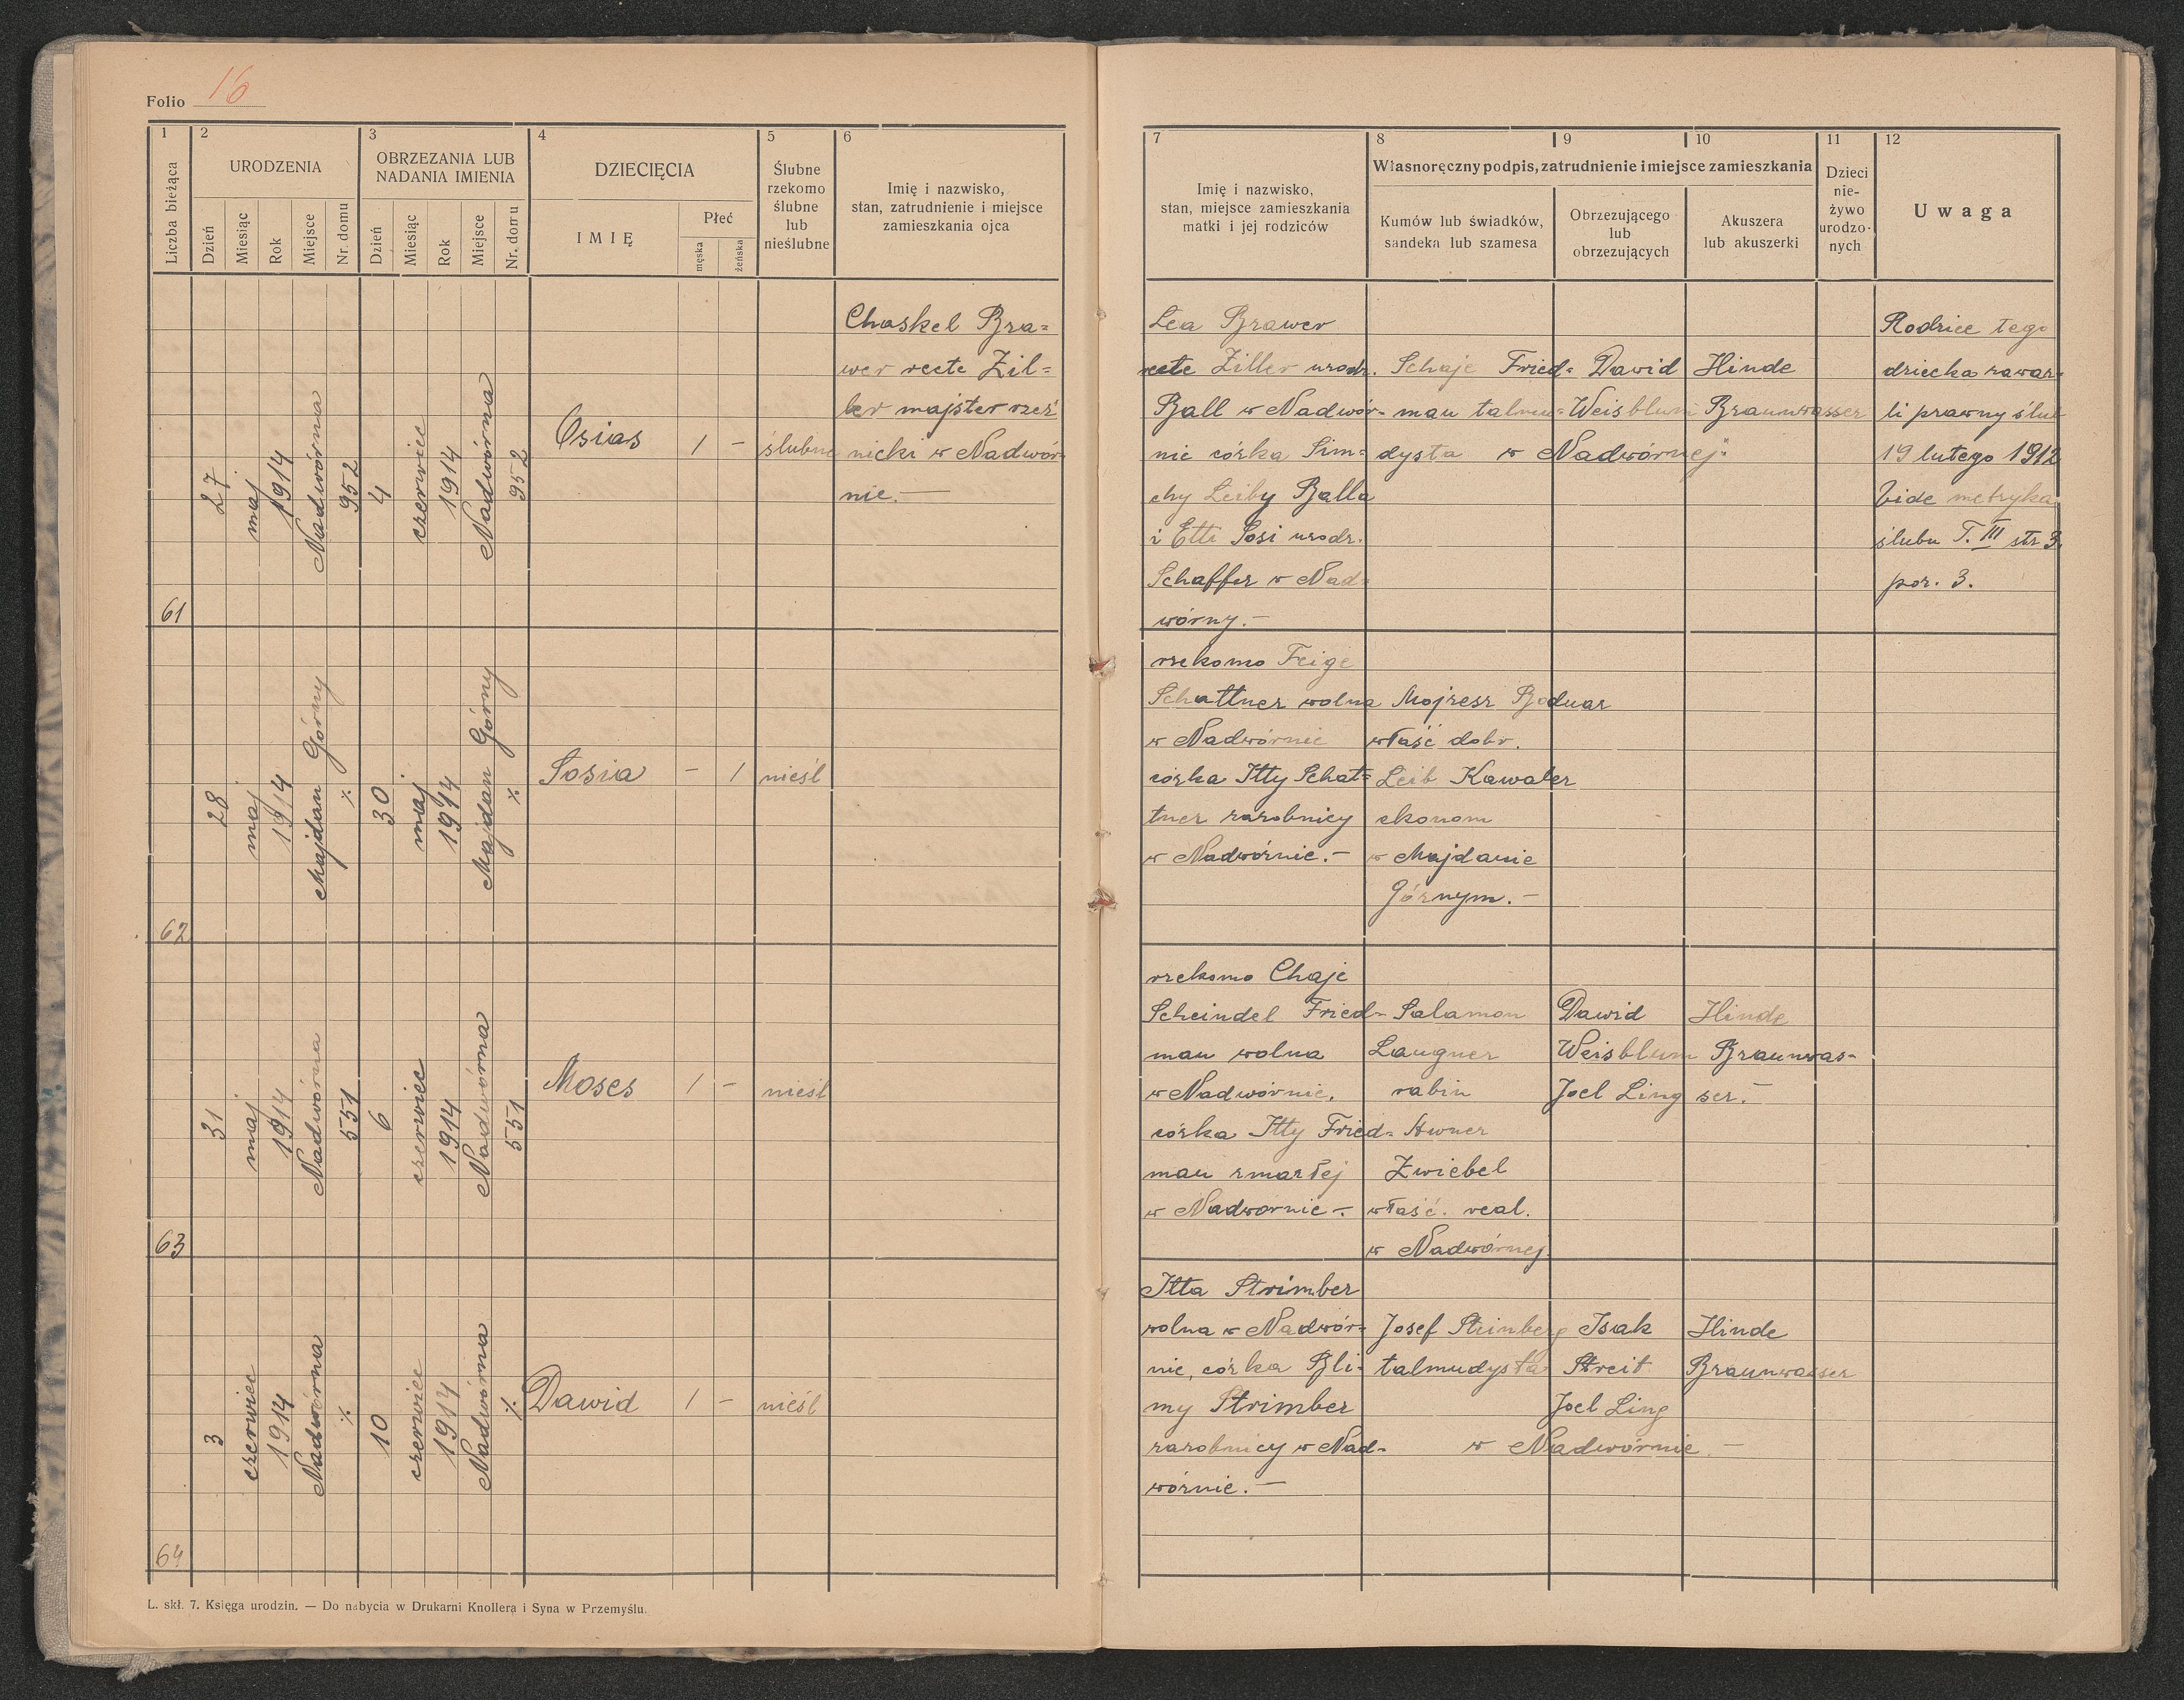 Folio 16
1 2 3 4 5 6
Liczba bieżąca
URODZENIA
Dzień Miesiąc Rok Miejsce Nr. domu
OBRZEZANIA LUB
NADANIA IMIENIA
Dzień Miesiąc Rok Miejsce Nr. domu
DZIECIĘCIA
IMIĘ
Płeć
męska żeńska
Ślubne
rzekomo
ślubne
lub
nieślubne
Imię i nazwisko,
stan, zatrudnienie i miejsce
zamieszkania ojca
7 8 9 10 11 12
Imię i nazwisko,
stan, miejsce zamieszkania
matki i jej rodziców
Własnoręczny podpis, zatrudnienie i miejsce zamieszkania
Kumów lub świadków,
sandeka lub szamesa
Obrzezującego
lub
obrzezujących
Akuszera
lub akuszerki
Dzieci
nie-
żywo
urodzo-
nych
Uwaga
61
27
maj
1914
Nadwórna
952
4
czerwiec
1914
Nadwórna
952
Osias
1 –
ślubne
Chaskel Bra=
wer recte Zil=
ler majster rzeź
nicki w Nadwór-
nie.—
Lea Brawer
recte Ziller urodz.
Ball w Nadwór-
nie córka Sim=
chy Leiby Balla
i Etti Sosi urodz.
Schaffer w Nad=
wórny.—
Schaje Fried=
man talmu=
dysta
Dawid
Weisblum
Hinde
Braunwasser
w Nadwórnej.
Rodzice tego
dziecka zawar-
li prawny ślub
19 lutego 1912
Vide metryka
ślubu T. III str 3.
poz. 3.
62
28
maj
1914
Majdan Górny
%
30
maj
1914
Majdan Górny
%
Sosia
– 1
nieśl
rzekomo Feige
Schattner wolna
w Nadwórnie
córka Itty Schat=
tner zarobnicy
w Nadwórnie.—
Mojzesz Boduar
właść dobr.
Leib Kawaler
ekonom
w Majdanie
Górnym.—
63
31
maj
1914
Nadwórna
551
6
czerwiec
1914
Nadwórna
551
Moses
1 –
nieśl
rzekomo Chaje
Scheindel Fried-
man wolna
w Nadwórnie,
córka Itty Fried=
man zmarłej
w Nadwornie—.
Salamon
Laugner
rabin
Awner
Zwiebel
właść. real.
w Nadwórnej.
Dawid
Weisblum
Joel Ling
Hinde
Braunwas-
ser.—
64
3
czerwiec
1914
Nadwórna
%
10
czerwiec
1914
Nadwórna
%
Dawid
1 –
nieśl
Itta Strimber
wolna w Nadwór-
nie, córka Bli-
my Strimber
zarobnicy w Nad-
wórnie.—
Josef Steinberg
talmudysta
Isak
Streit
Joel Ling
Hinde
Braunwasser
w Nadwórnie.—
L. skł. 7. Księga urodzin. — Do nabycia w Drukarni Knollera i Syna w Przemyślu.